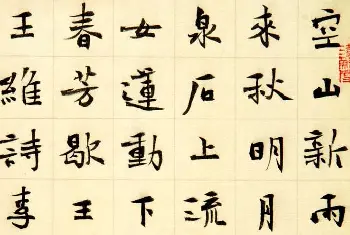 空山新雨
来秋明月
泉石上流
女蓮動下
春芳歇王
王維詩李